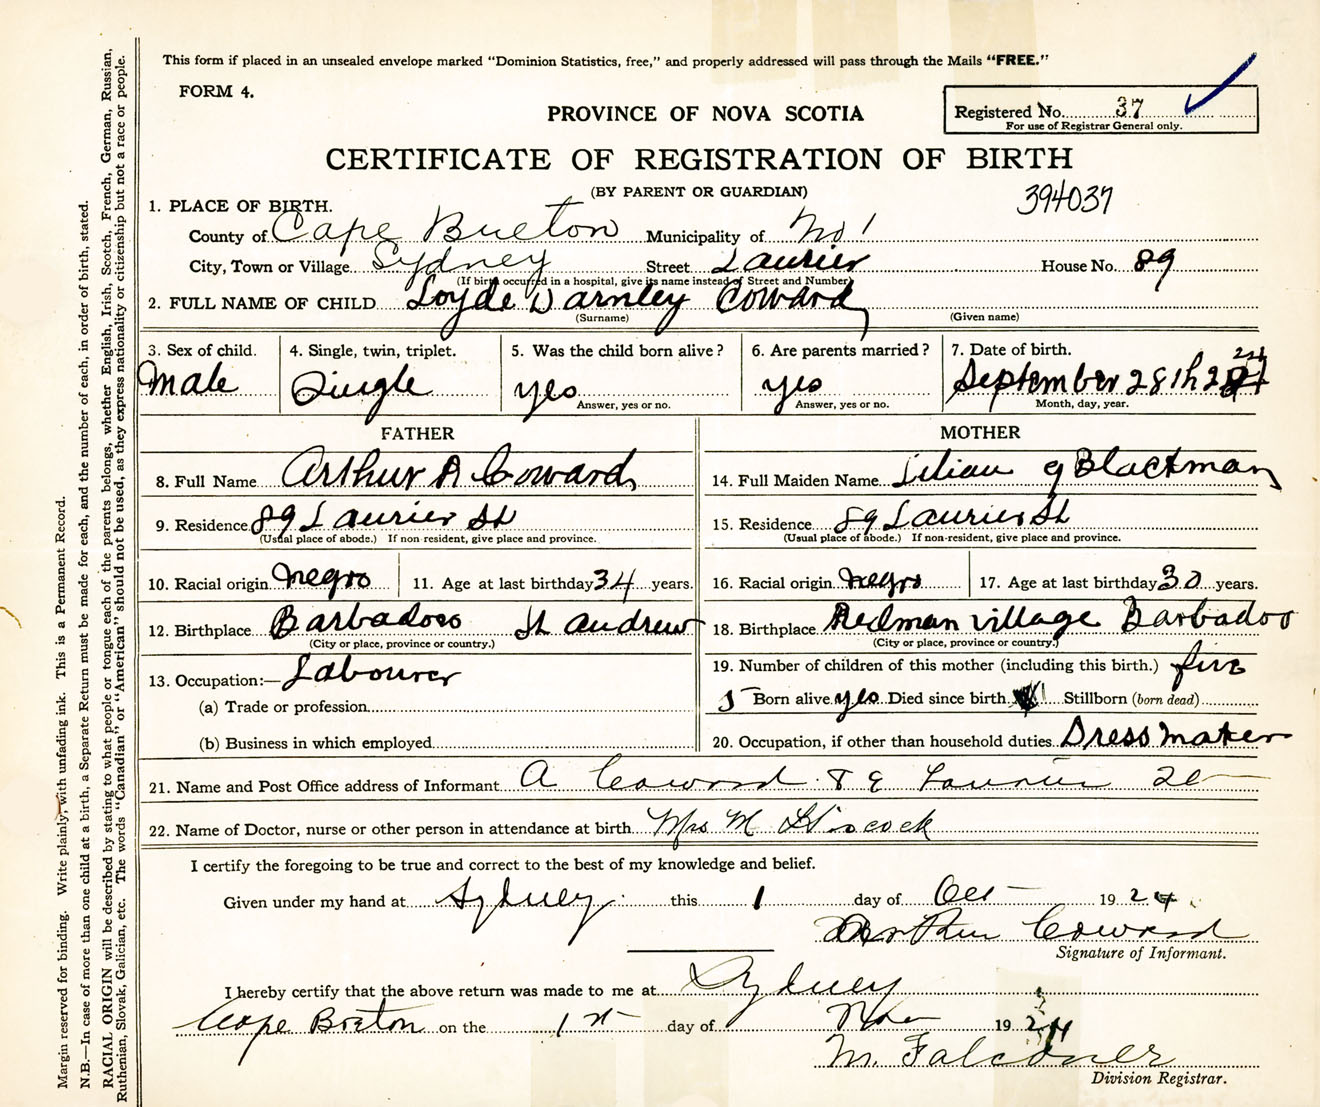 This form if placed in an unsealed envelope marked "Dominion Statistics, free," and properly addressed will pass through the Mails "FREE."
FORM 4.
PROVINCE OF NOVA SCOTIA
Registered No. 37
For use of Registrar General only.
CERTIFICATE OF REGISTRATION OF BIRTH
(BY PARENT OR GUARDIAN)
394037
1. PLACE OF BIRTH.
County of Cape Breton Municipality of No 1
City, Town or Village Sydney Street Laurier House No. 89
(If birth occurred in a hospital, give its name instead of Street and Number)
2. FULL NAME OF CHILD Loyde Darnley Coward
(Surname) (Given name)
3. Sex of child. Male
4. Single, twin, triplet. Single
5. Was the child born alive? yes
Answer, yes or no.
6. Are parents married? yes
Answer, yes or no.
7. Date of birth. September 28th
Month, day, year.
FATHER
8. Full Name Arthur A Coward
9. Residence 89 Laurier St
(Usual place of abode.) If non-resident, give place and province.
10. Racial origin negro 11. Age at last birthday 34 years.
12. Birthplace Barbados St andrew
(City or place, province or country.)
13. Occupation:— Labourer
(a) Trade or profession
(b) Business in which employed
MOTHER
14. Full Maiden Name Lilian g Blackman
15. Residence 89 Laurier St
(Usual place of abode.) If non-resident, give place and province.
16. Racial origin negro 17. Age at last birthday 30 years.
18. Birthplace Redman village Barbados
(City or place, province or country.)
19. Number of children of this mother (including this birth.) five
5 Born alive yes Died since birth Stillborn (born dead)
20. Occupation, if other than household duties. Dress maker
21. Name and Post Office address of Informant A Coward 89 Laurier
22. Name of Doctor, nurse or other person in attendance at birth Mrs M
I certify the foregoing to be true and correct to the best of my knowledge and belief.
Given under my hand at Sydney this 1 day of Oct 1924
Arthur Coward
Signature of Informant.
I hereby certify that the above return was made to me at Sydney
Cape Breton on the 1st day of Nov 1924
M. Falconer
Division Registrar.
Margin reserved for binding. Write plainly with unfading ink. This is a Permanent Record.
N.B.—In case of more than one child at a birth, a Separate Return must be made for each, and the number of each, in order of birth, stated.
RACIAL ORIGIN will be described by stating to what people or tongue each of the parents belongs, whether English, Irish, Scotch, French, German, Russian,
Ruthenian, Slovak, Galician, etc. The words "Canadian" or "American" should not be used, as they express nationality or citizenship but not a race or people.